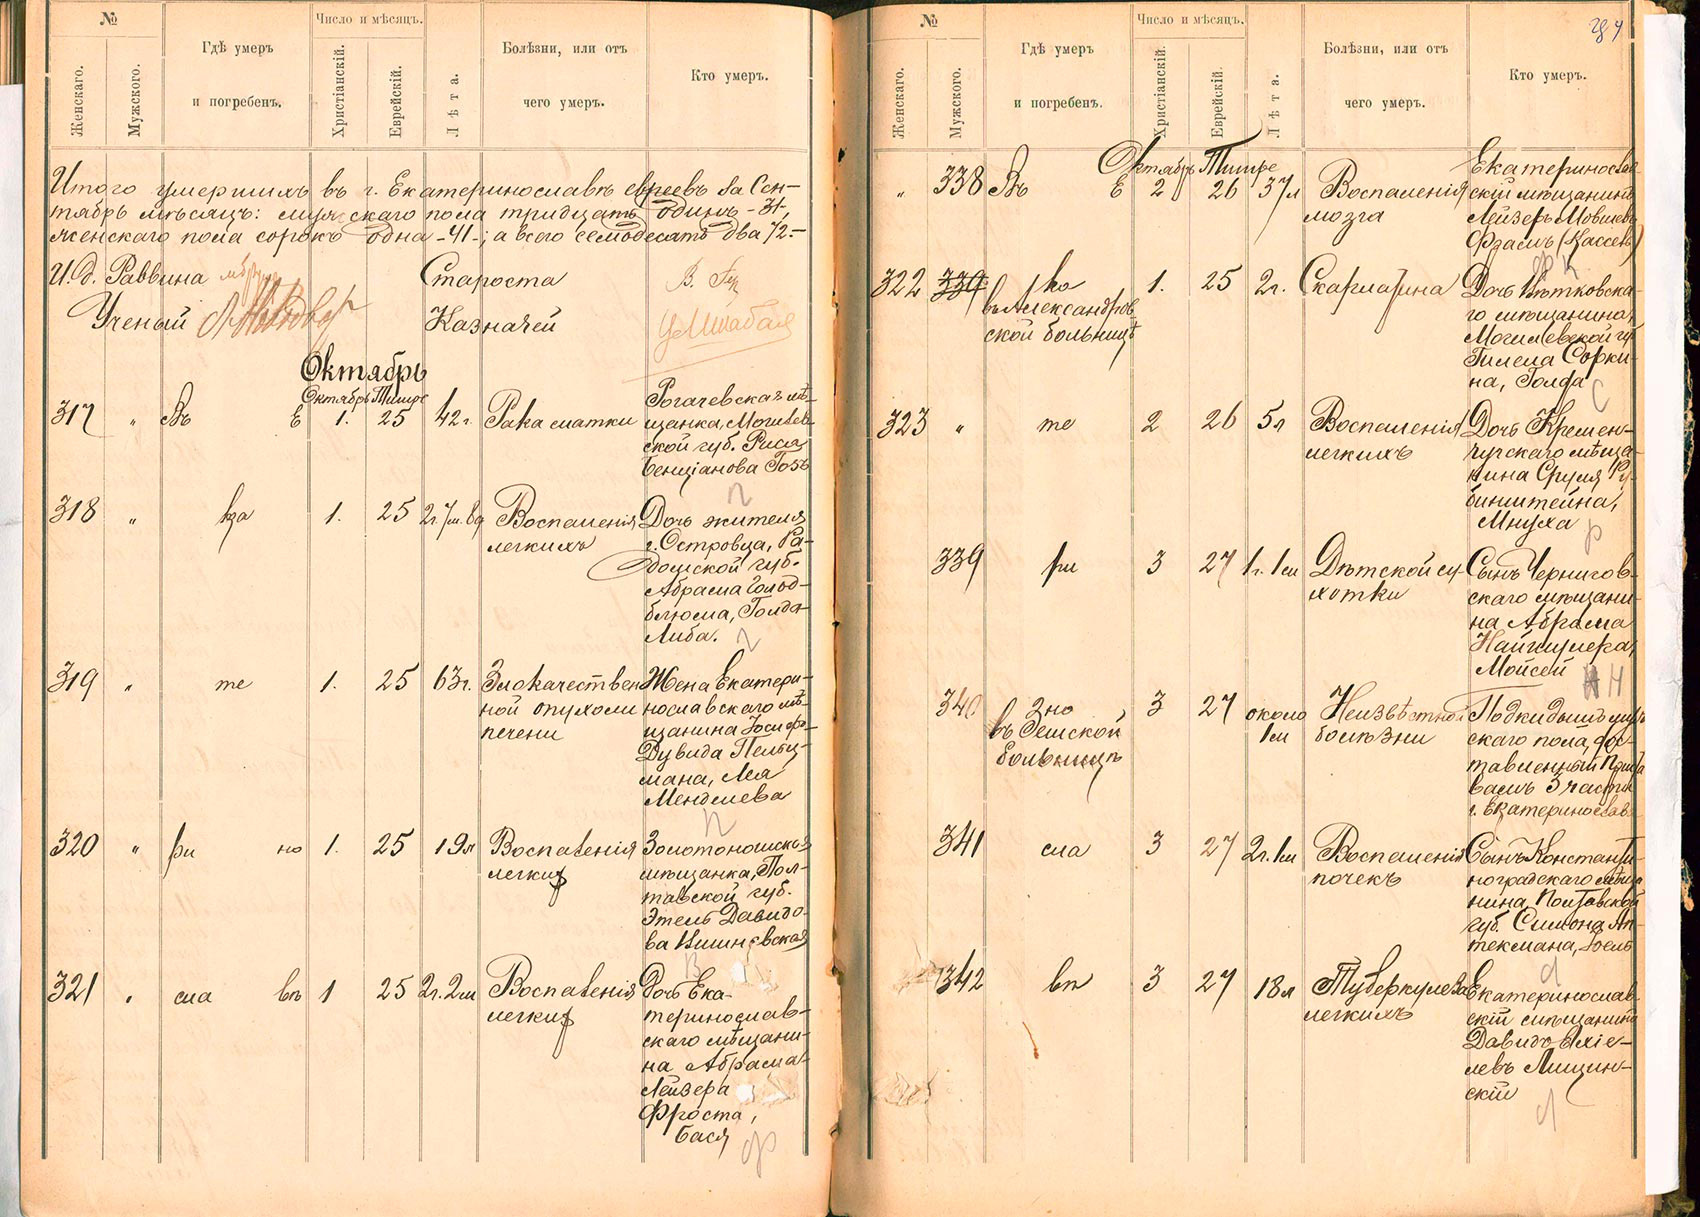 №
Число и мѣсяцъ.
Женскаго.
Мужского.
Гдѣ умеръ
и погребенъ.
Христіанскій.
Еврейскій.
Лѣта.
Болѣзни, или отъ
чего умеръ.
Кто умеръ.
Итого умершихъ въ г. Екатеринославѣ евреевъ за Сен-
тябрь мѣсяцъ: мужскаго пола тридцать одинъ -31-,
женскаго пола сорокъ одна -41-; а всего семьдесятъ два 72.-
И. д. Раввина
Староста
Ученый
Казначей
Октябрь
Октябрь Тишре
317 " Въ Е 1. 25 42 г. Рака матки
Рогачевская мѣ-
щанка, Могилев-
ской губ. Рися
Бенціанова Гозъ
318 " ка 1. 25 2г. 7м. 8д Воспаленія
легкихъ
Дочь жителя
г. Островца, Ра-
домской губ.
Абрама Голод-
блюма, Голда-
Либа.
319 " те 1. 25 63г. Злокачествен
ной опухоли
печени
Жена Екатери-
нославскаго мѣ-
щанина Іосифа-
Дувида Пельц-
мана, Лея
Менделева
320 " ри но 1. 25 19л Воспаленія
легких
Золотоношская
мѣщанка, Пол-
тавской губ.
Этель Давидо-
ва Вишневская
321 " сла въ 1 25 2г. 2м Воспаленія
легких
Дочь Ека-
теринослав-
скаго мѣщани-
на Абрама-
Лейзера
Фроста,
Бася
№
Число и мѣсяцъ.
Женскаго.
Мужского.
Гдѣ умеръ
и погребенъ.
Христіанскій.
Еврейскій.
Лѣта.
Болѣзни, или отъ
чего умеръ.
Кто умеръ.
Октябрь Тишре
" 338 Въ Е 2 26 37л Воспаленія
мозга
Екатеринослав-
скій мѣщанинъ
Лейзеръ Мовшевъ
322 339 ка
въ Александров-
ской больницѣ
1. 25 2г. Скарлатина
Дочь Вѣтковска-
го мѣщанина,
Могилевской губ
Гилела Сорки-
на, Голда
323 " те 2 26 5л Воспаленія
легкихъ
Дочь Кремен-
чугскаго мѣща-
нина Сруля Ру-
бинштейна,
Мнуха
339 ри 3 27 1г. 1м Дѣтской су-
хотки
Сынъ Чернигов-
скаго мѣщани-
на Абрама
Мойсей
340 зно
въ Земской
больницѣ
3 27 около
1м
Неизвѣстной
болѣзни
Подкидышъ муж-
скаго пола, дос-
тавленный
3 части
г. Екатеринослав
341 сла 3 27 2г. 1м Воспаленія
почекъ
Сынъ Константи-
ноградскаго мѣща
нина, Полтавской
губ. Симона Ап-
текмана, Іоель
342 въ 3 27 18л Туберкулеза
легкихъ
Екатеринослав-
скій мѣщанинъ
Давидъ Еліе-
левъ Лищин-
скій